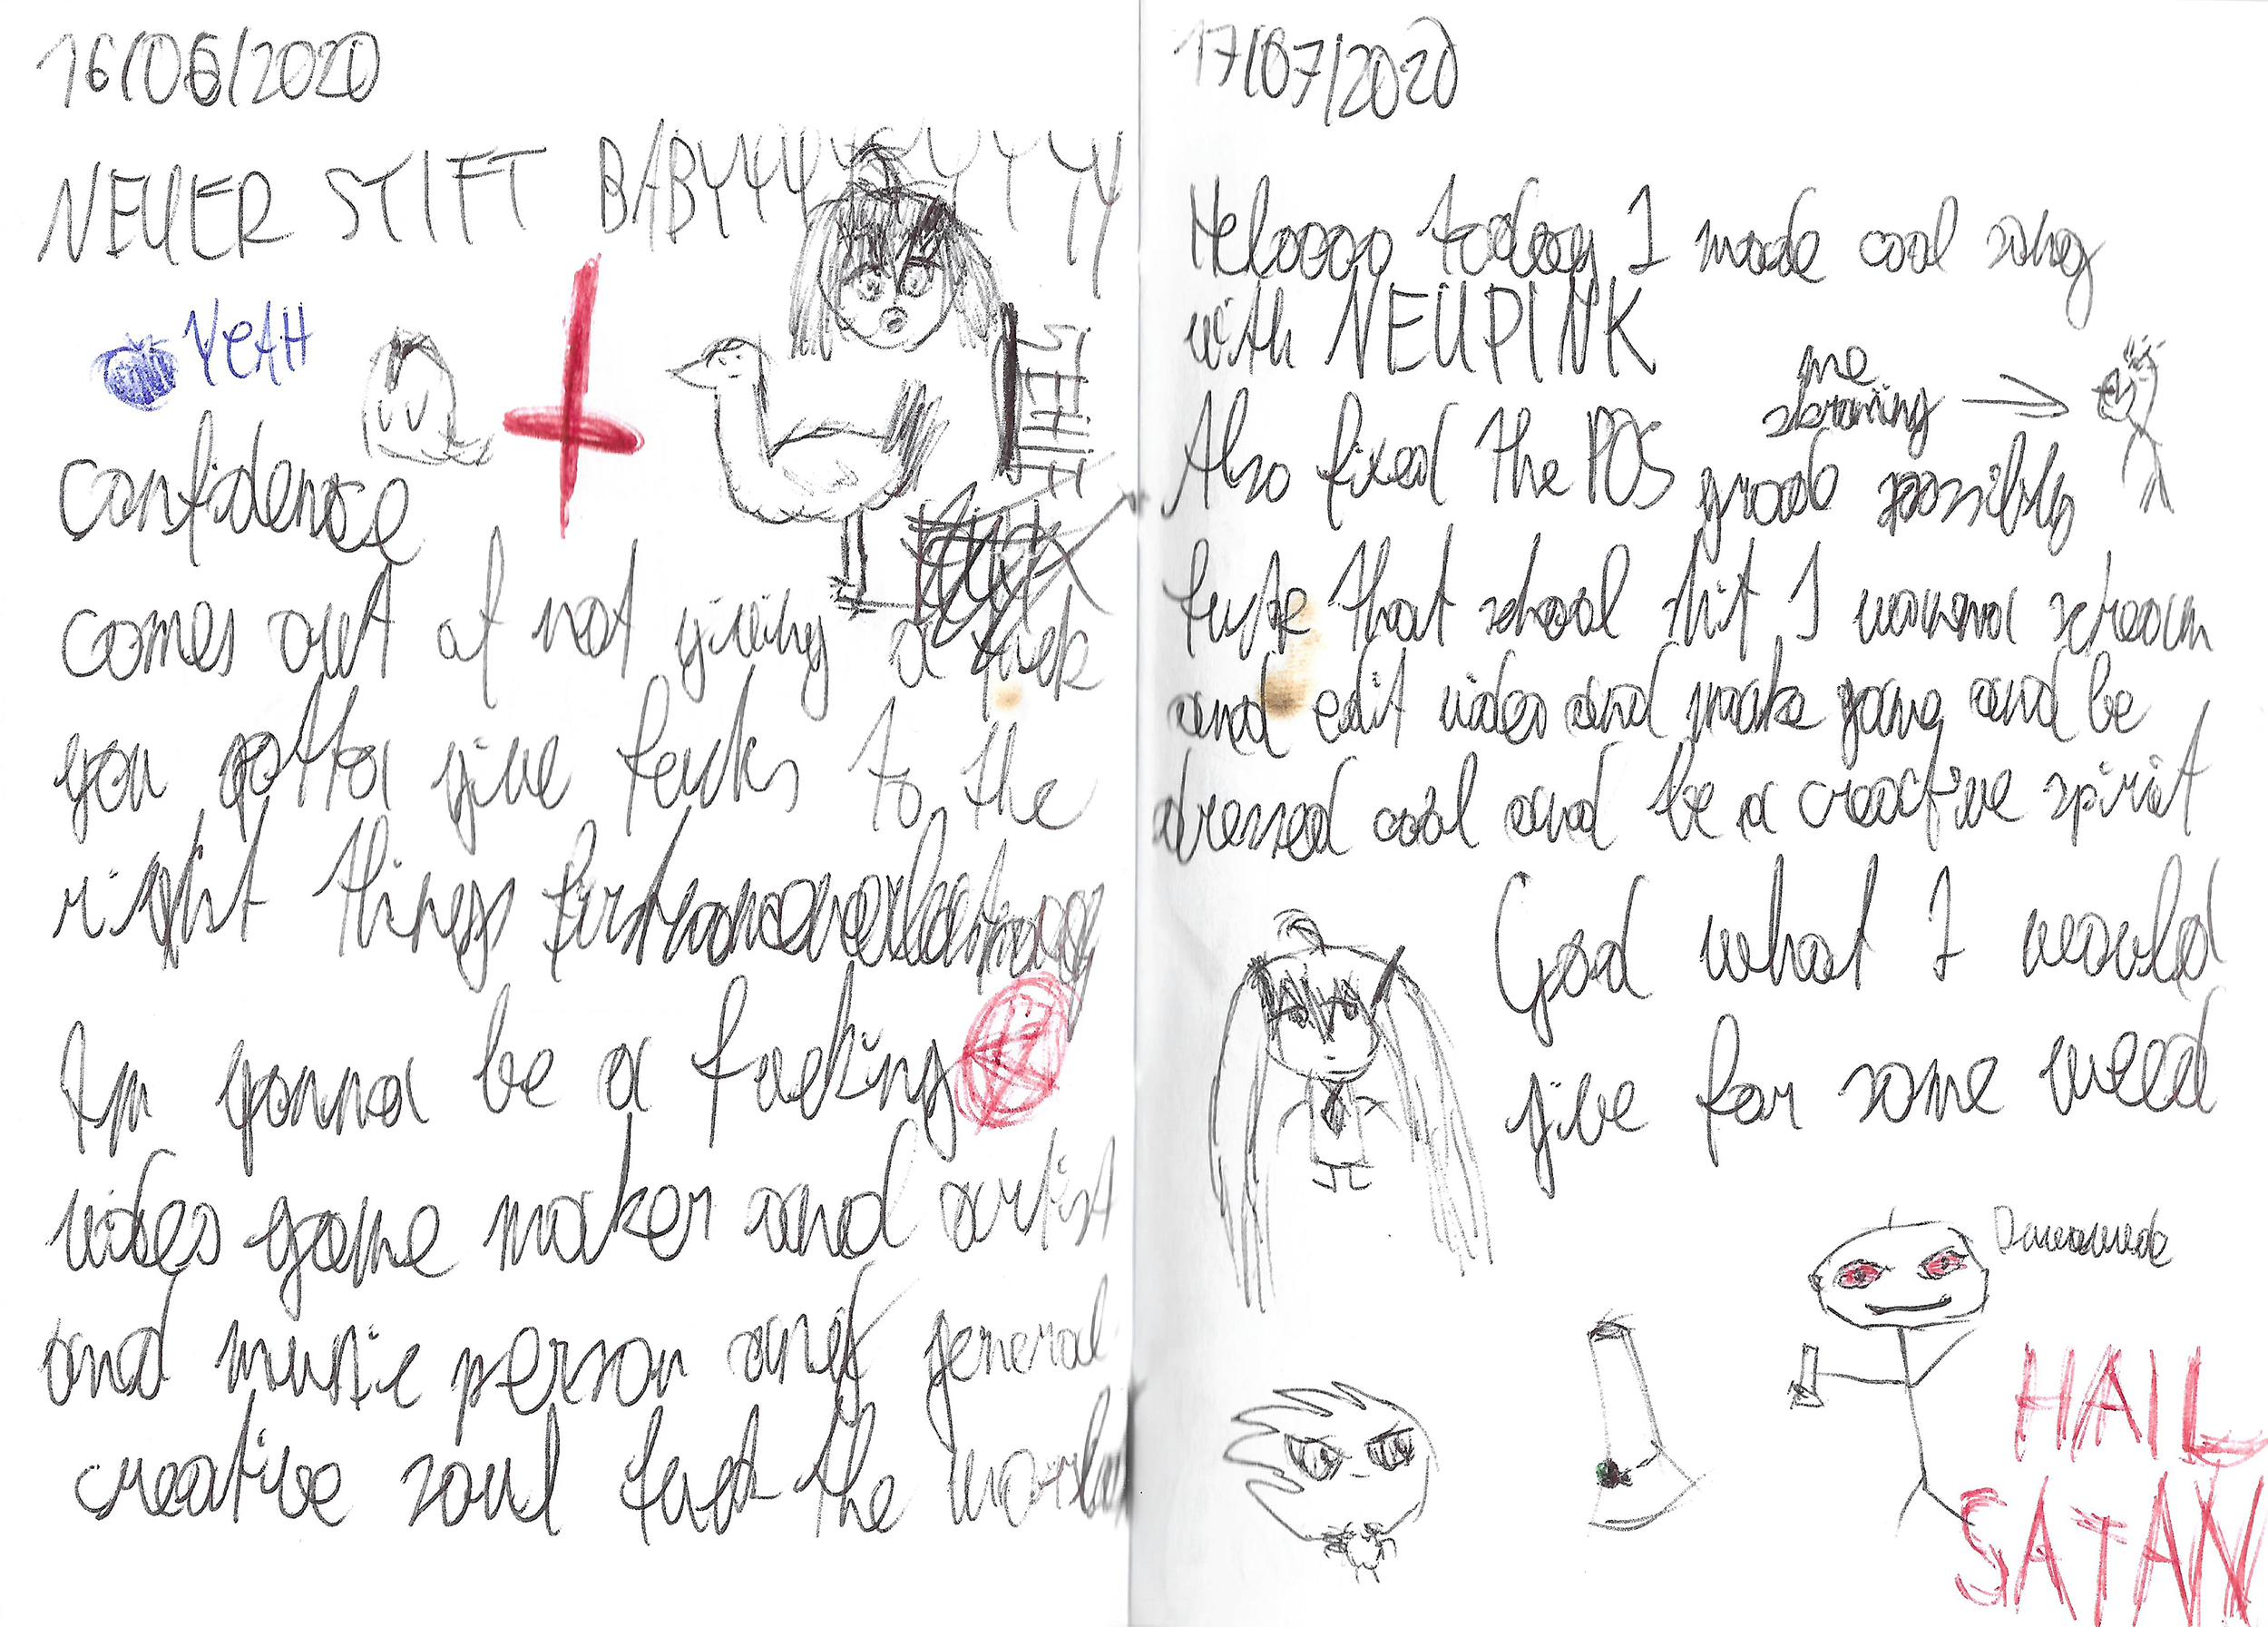 16/06/2020
NEUER STIFT BABYYYYYYYYY
YEAH
confidence
comes out of not giving a fuck
you gotta give fucks to the
right things first
Im gonna be a fucking
video game maker and artist
and music person and general
creative soul fuck the
17/07/2020
Heloooo today I made cool song
with NEUPINK
me
Also fixed the POS grade possibly
fuck that school shit I wanna scream
and edit video and make game and be
dressed cool and be a creative spirit
God what I would
give for some weed
HAIL
SATAN